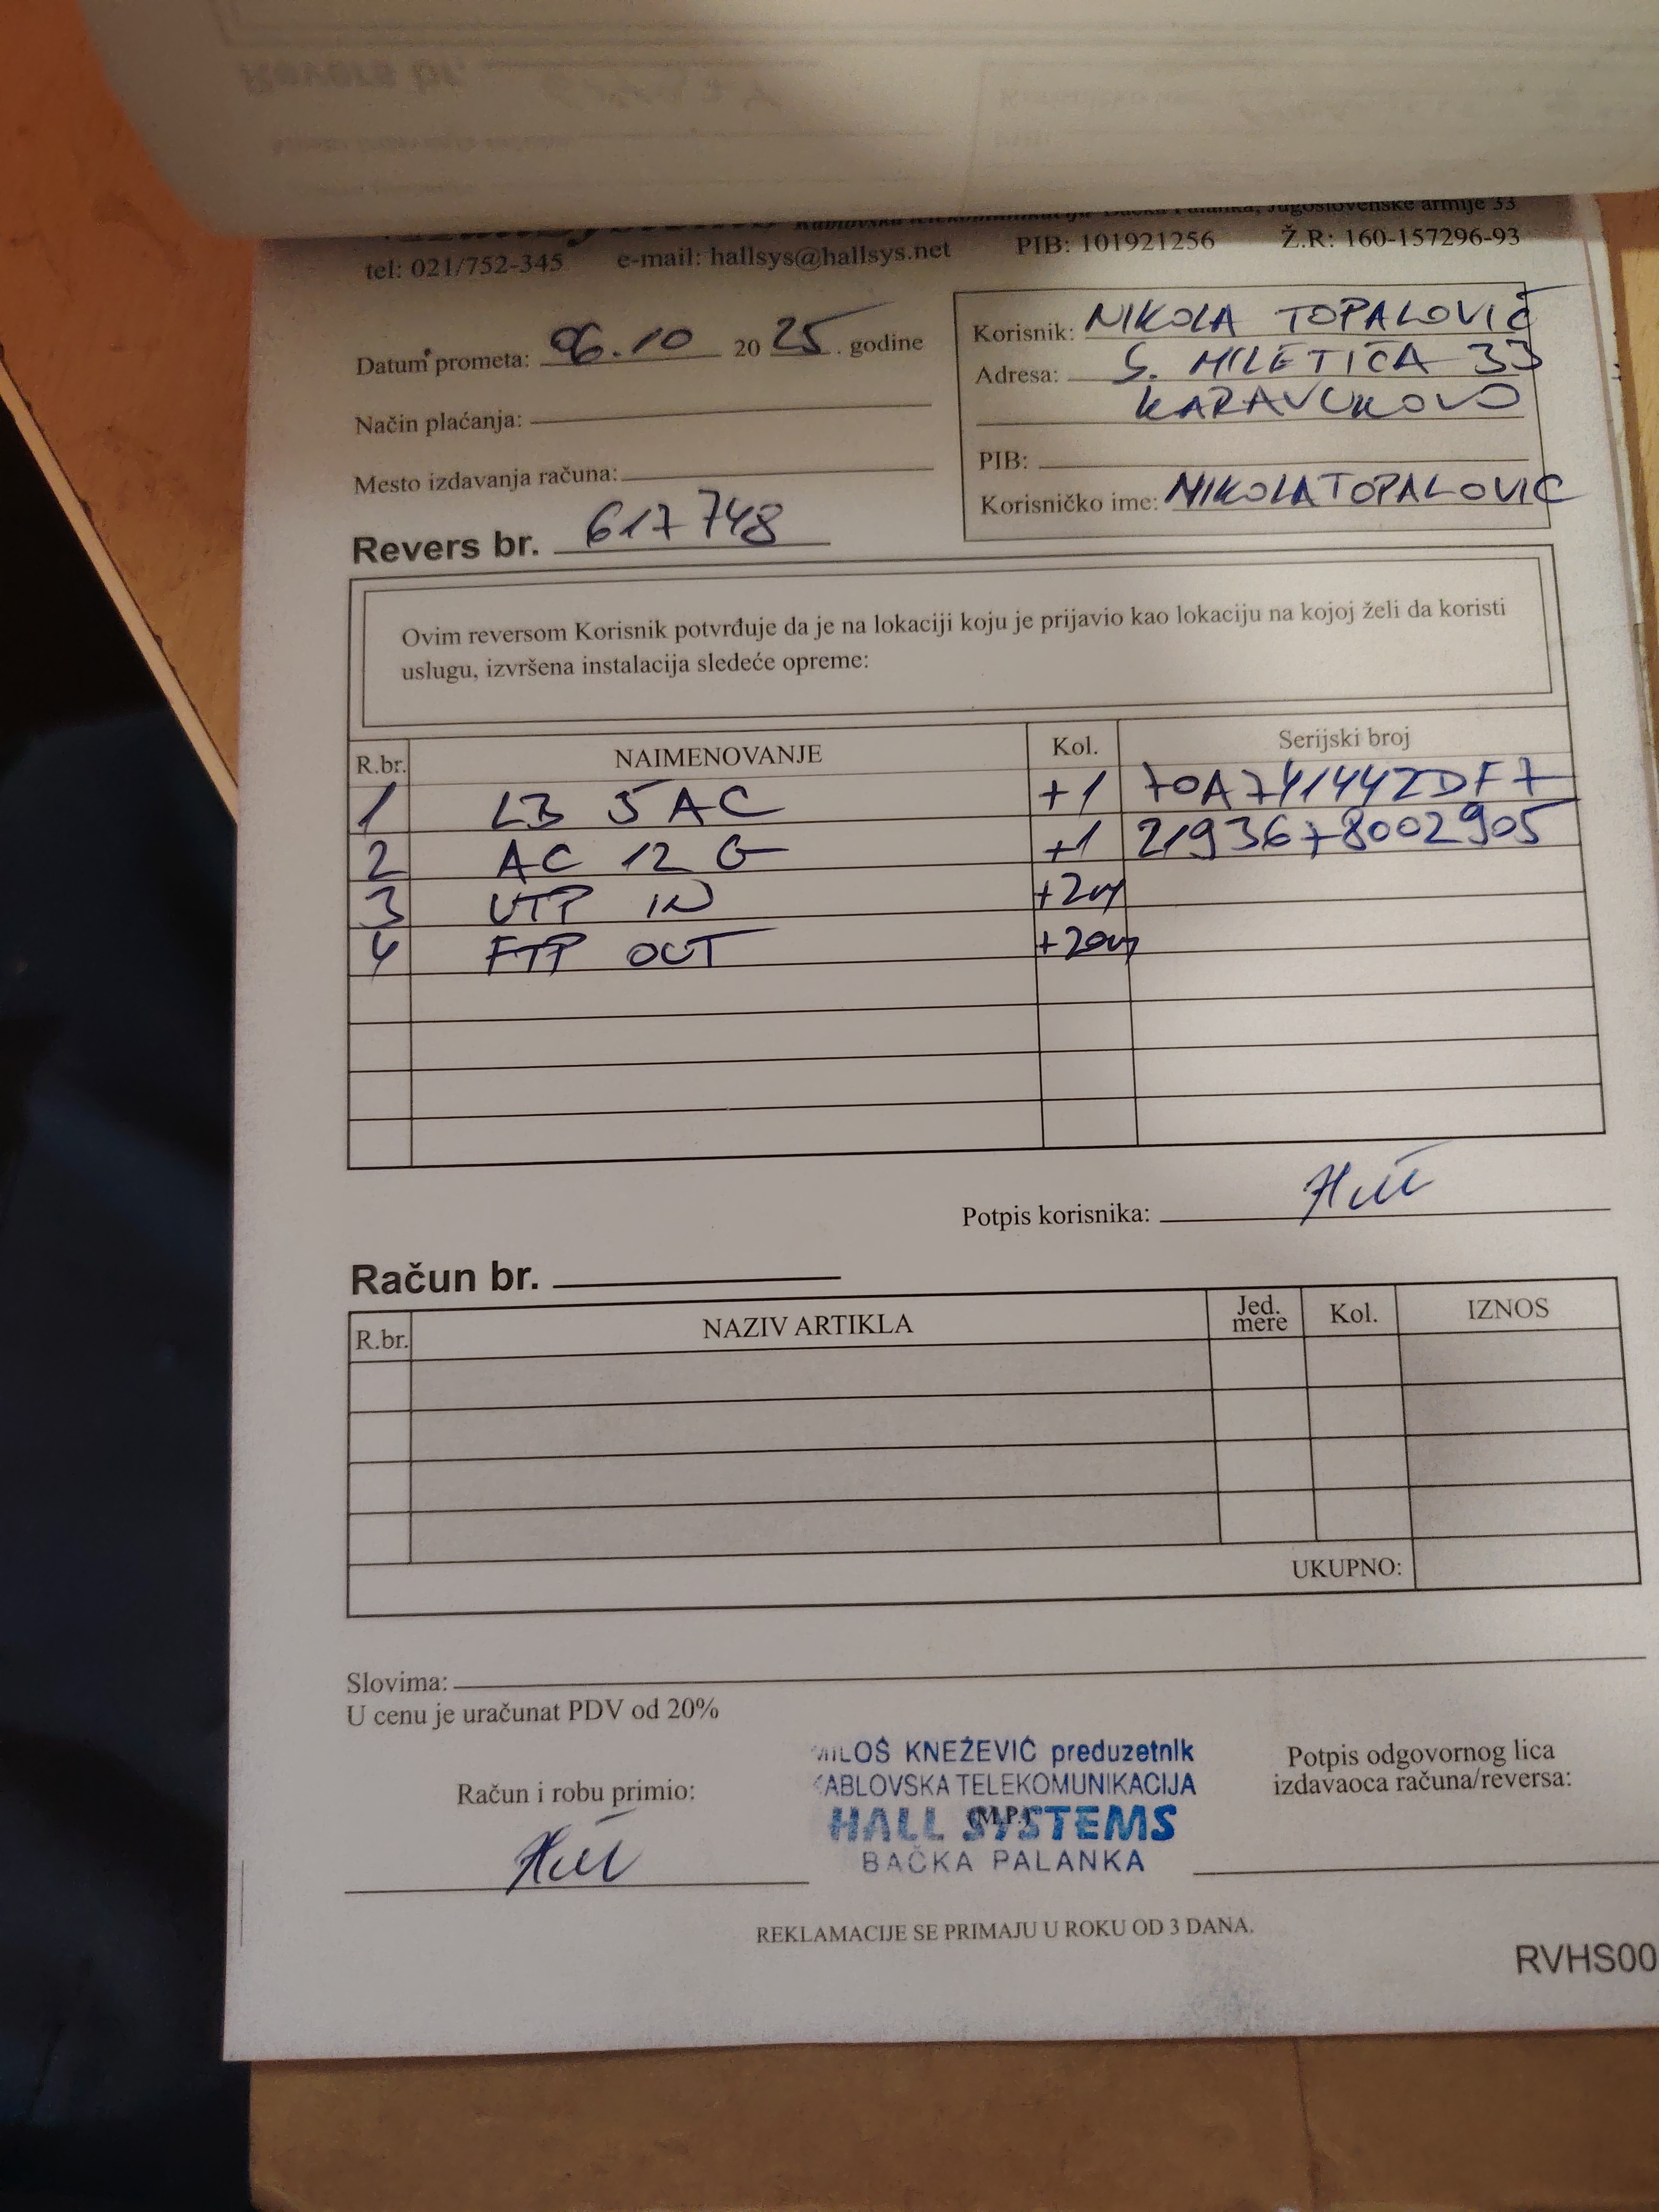 Kablovska telekomunikacija Bačka Palanka, Jugoslovenske armije 33
tel: 021/752-345 e-mail: hallsys@hallsys.net PIB: 101921256 Ž.R: 160-157296-93
Datum prometa: 06.10 2025. godine
Način plaćanja:
Mesto izdavanja računa:
Korisnik: NIKOLA TOPALOVIĆ
Adresa: S. MILETIĆA 33
KARAVUKOVO
PIB:
Korisničko ime: NIKOLATOPALOVIC
Revers br. 617748
Ovim reversom Korisnik potvrđuje da je na lokaciji koju je prijavio kao lokaciju na kojoj želi da koristi
uslugu, izvršena instalacija sledeće opreme:
R.br. NAIMENOVANJE Kol. Serijski broj
1 LB 5 AC +1 70A741442DF7
2 AC 12 G +1 2193678002905
3 UTP IN +2m
4 FTP OUT +20m
Potpis korisnika:
Račun br.
R.br. NAZIV ARTIKLA Jed. mere Kol. IZNOS
UKUPNO:
Slovima:
U cenu je uračunat PDV od 20%
Račun i robu primio:
MILOŠ KNEŽEVIĆ preduzetnik
KABLOVSKA TELEKOMUNIKACIJA
(M.P.)
HALL SYSTEMS
BAČKA PALANKA
Potpis odgovornog lica
izdavaoca računa/reversa:
REKLAMACIJE SE PRIMAJU U ROKU OD 3 DANA.
RVHS00